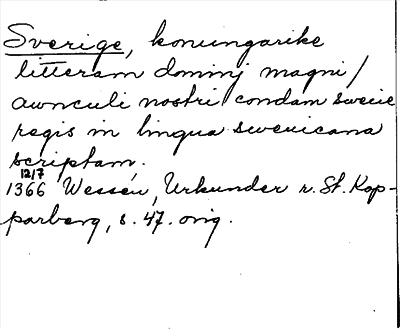 Sverige, konungarike
litteram dominj magni /
awnculi nostri condam swecie
regis in lingua swenicana
scriptam.
12/7
1366 Wessén, Urkunder r. St. Kop-
parberg, s. 47. orig.